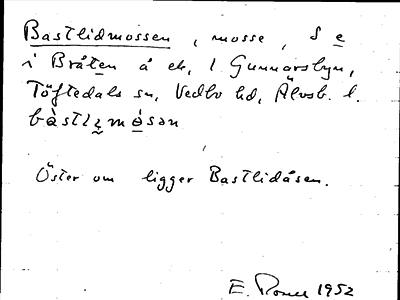 Bastlidmossen, mosse, S e
i Bråten å ek, 1 Gunnarsbyn,
Töftedals sn, Vedbo hd, Älvsb. l.
bàstlɩ̯mɵ́sən
Öster om ligger Bastlidåsen.
E. 1952